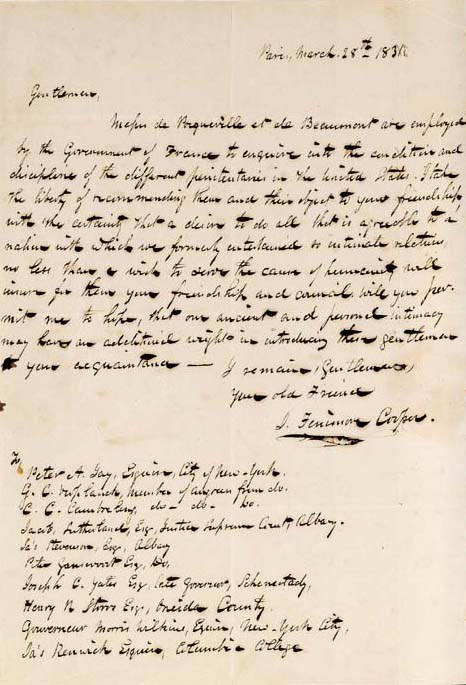 Paris, March. 28th 1831
Gentlemen,
Messrs de Tocqueville et de Beaumont are employed
by the Government of France to enquire into the condition and
discipline of the different penitentaries in the United States. I take
the liberty of recommending them and their object to your friendship
with the certainty that a desire to do all that is agreeable to a
nation with which we formerly entertained so intimate relations,
no less than a wish to serve the cause of humanity will
insure for them your friendship and councils. Will you per-
mit me to hope, that our ancient and personal intimacy
may have an additional weight in introducing these gentlemen
to your acquaintance — I remain, Gentlemen,
Your old Friend
J. Fenimore Cooper.
To,
Peter A. Jay, Esquire, City of New-York.
G. C. Verplanck, Member of Congress from do.
C. C. Cambreleng, do — do — Do.
Jacob Sutherland, Esq, Justice Supreme Court, Albany.
Ja's Stevenson, Esq, Albany
Peter Gansevoort Esq, Do,
Joseph C. Yates Esq, late Governor, Schenectady,
Henry R Storrs Esq, Oneida County.
Gouverneur Morris Wilkins, Esquire, New-York City,
Ja's Renwick Esquire, Columbia College